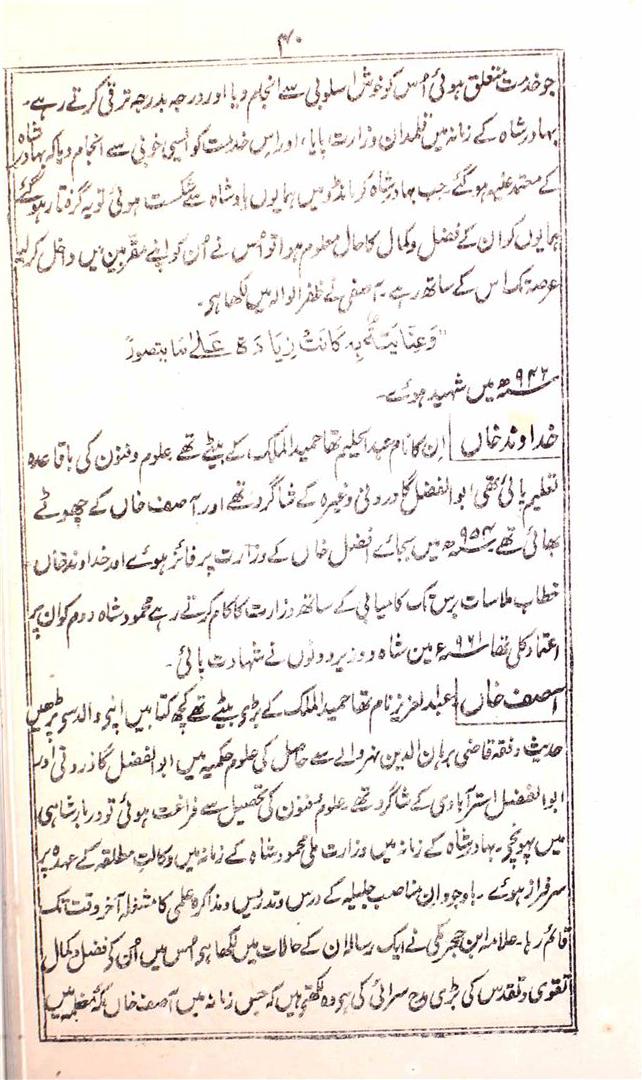 ۴۰
جو خدمت متعلق ہوئی اُس کو خوش اسلوبی سے انجام دیا اور درجہ بدرجہ ترقی کرتے رہے۔
بہادر شاہ کے زمانہ میں قلمدان وزارت پایا، اور اس خدمت کو ایسی خوبی سے انجام دیا کہ بہادر شاہ
کے معتمد علیہ ہو گئے جب بہادر شاہ کو مانڈو میں ہمایوں بادشاہ سے شکست ہوئی تو یہ گرفتار ہو گئے
ہمایوں کو ان کے فضل و کمال کا حال معلوم ہوا تو اُس نے اُن کو اپنے مقربین میں داخل کر لیا
عرصہ تک اس کے ساتھ رہے۔ آصفی نے ظفر الوالہ میں لکھا ہی۔
"وَعِنَایَتُہٗ بِہٖ کَانَتْ زِیَادَۃ عَلٰی مَا یتصور"
۹۴۲ھ میں شہید ہوئے۔
خداوند خاں اِن کا نام عبد الحلیم تھا حمید الملک کے بیٹے تھے علوم و فنون کی باقاعدہ
تعلیم پائی تھی ابو الفضل گازرونی وغیرہ کے شاگرد تھے اور آصف خاں کے چھوٹے
بھائی تھے ۹۵۴ھ میں بجائے افضل خاں کے وزارت پر فائز ہوئے اور خداوند خاں
خطاب ملا سات برس تک کامیابی کے ساتھ وزارت کا کام کرتے رہے محمود شاہ دوم کو ان پر
اعتماد کلی تھا ۹۶۱ھ مین شاہ و وزیر دونوں نے شہادت پائی۔
آصف خاں عبد العزیز نام تھا حمید الملک کے بڑی بیٹے تھے کچھ کتابیں اپنی والد سی پڑھیں
حدیث و فقہ قاضی برہان الدین نہروالے سے حاصل کی علوم حکمیہ میں ابو الفضل گازرونی اور
ابو الفضل استرآبادی کے شاگرد تھے علوم و فنون کی تحصیل سے فراغت ہوئی تو دربار شاہی
میں پہونچی۔ بہادر شاہ کے زمانہ میں وزارت ملی محمود شاہ کے زمانہ میں وکالت مطلقہ کے عہدہ پر
سرفراز ہوئے۔ باوجود ان مناصب جلیلہ کے درس و تدریس و مذاکرہ علمی کا مشغلہ آخر وقت تک
قائم رہا۔ علامہ ابن حجر مکی نے ایک رسالہ ان کے حالات میں لکھا ہی اُس میں اُن کی فضل و کمال
تقوی و تقدس کی بڑی مدح سرائی کی ہی وہ لکھتی ہیں کہ جس زمانہ میں آصف خاں مکہ معظمہ میں